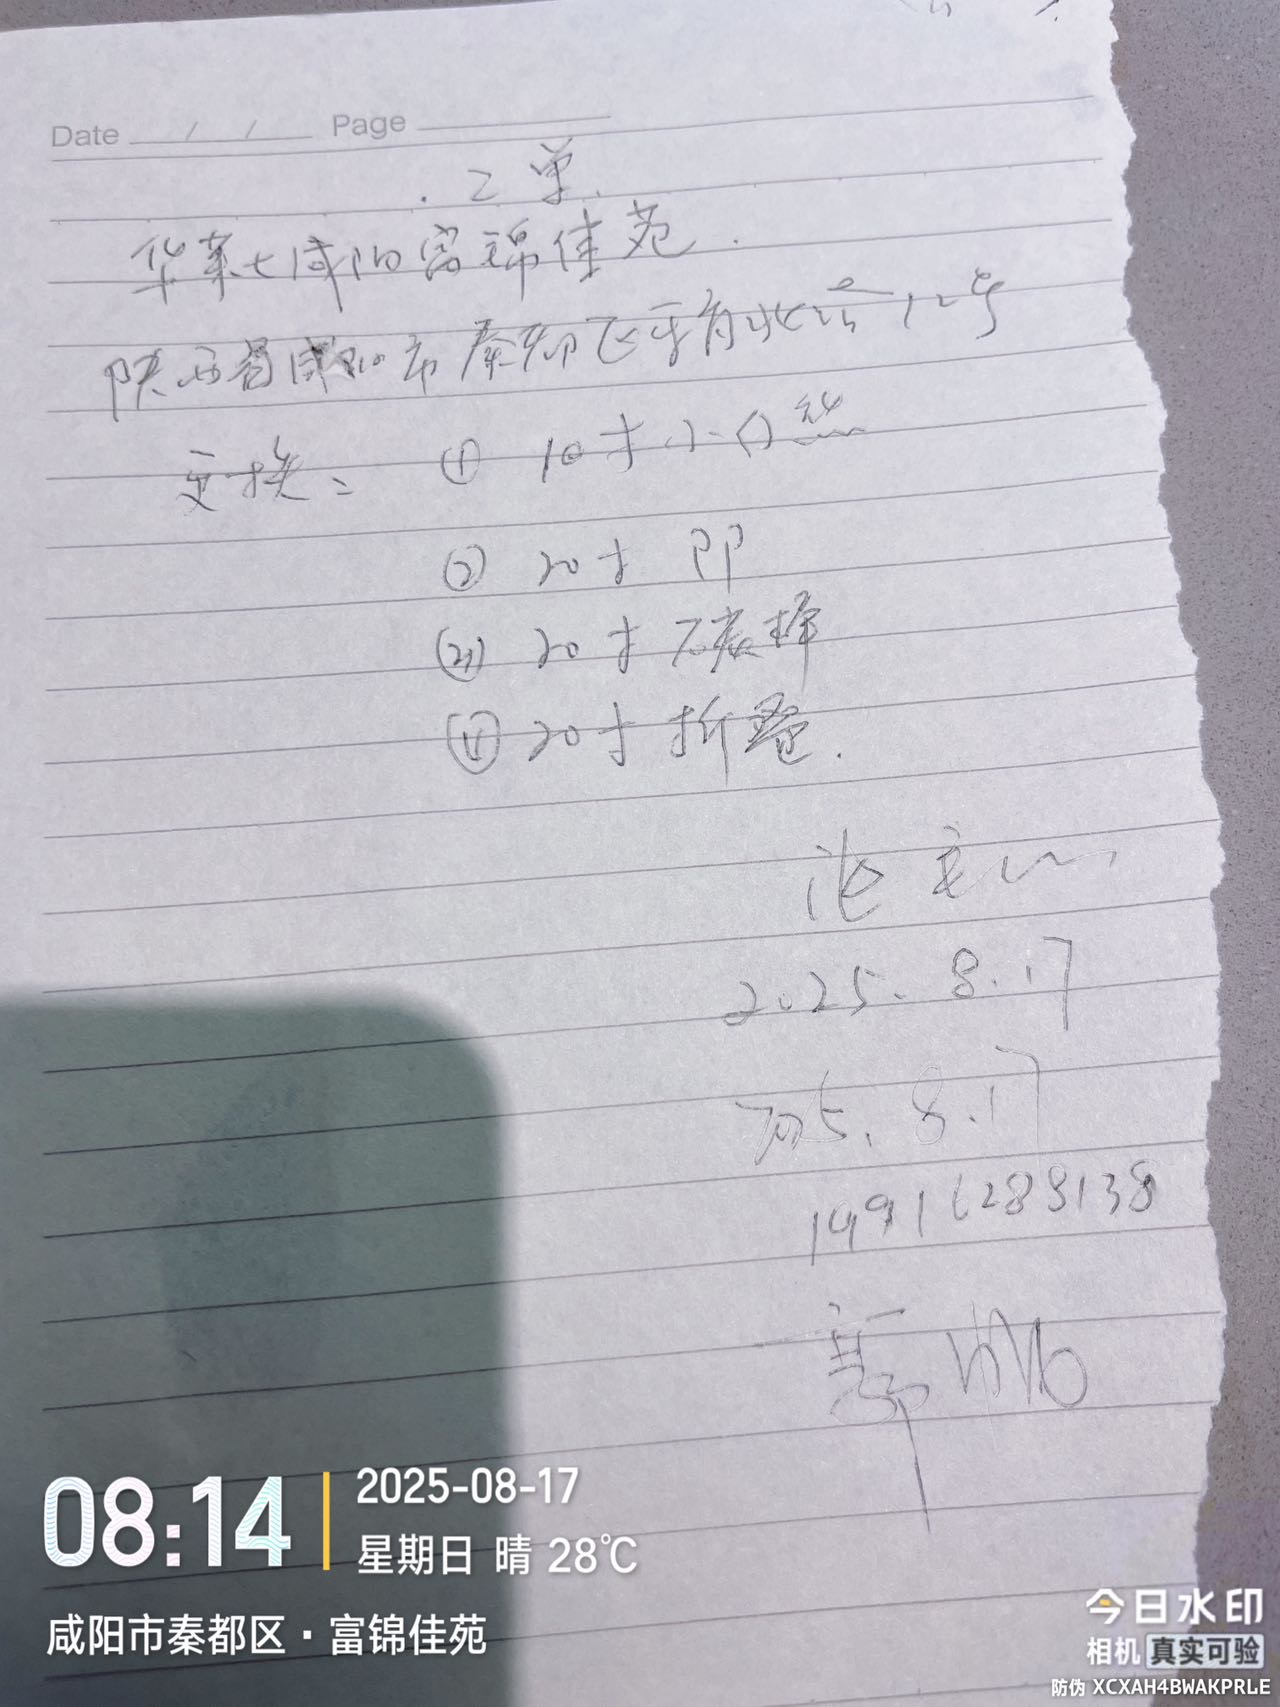 Date / / Page
工单
华莱士咸阳富锦佳苑.
陕西省咸阳市秦都区 12号
更换: ① 10寸小白
② 20寸PP
③ 20寸
④ 20寸折叠.
2025. 8.17
2025. 8.17
19916288138
郭
08:14
2025-08-17
星期日 晴 28℃
咸阳市秦都区·富锦佳苑
今日水印
相机 真实可验
防伪 XCXAH4BWAKPRLE